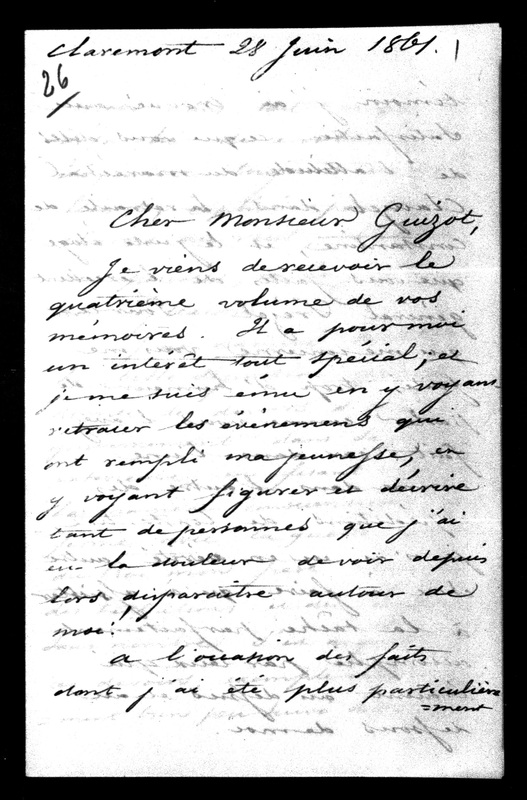 Claremont 28 Juin 1861.
26
Cher Monsieur Guizot,
Je viens de recevoir le
quatrième volume de vos
mémoires. Il a pour moi
un intérêt tout spécial; et
je me suis ému en y voyant
retracer les événemens qui
ont rempli ma jeunesse, et
y voyant figurer et décrire
tant de personnes que j'ai
eu la douleur de voir depuis
lors, disparaître autour de
moi!
A l'occasion des faits
dont j'ai été plus particulière
=ment